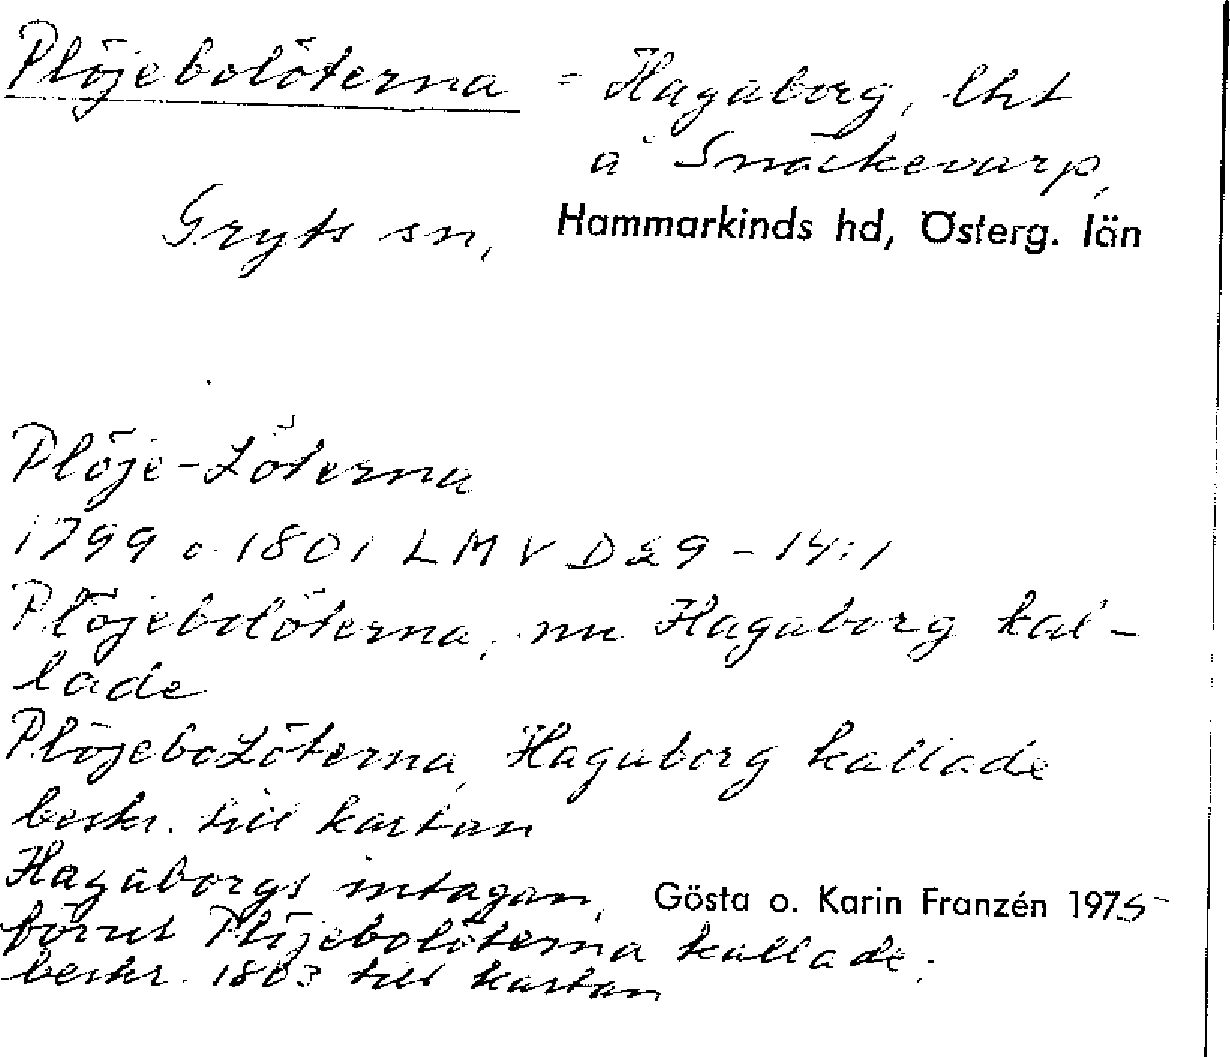 Plöjebolöterna = Hagaborg, lht
å Snäckevarp,
Gryts sn, Hammarkinds hd, Österg. län
Plöje-Löterna
1799 o. 1801 LMV D29-14:1
Plöjebolöterna, nu Hagaborg kal-
lade
PlöjeboLöterna, Hagaborg kallade
beskr. till kartan
Hagaborgs intagan,
förut Plöjebolöterna kallade.
beskr. 1803 till kartan
Gösta o. Karin Franzén 1975